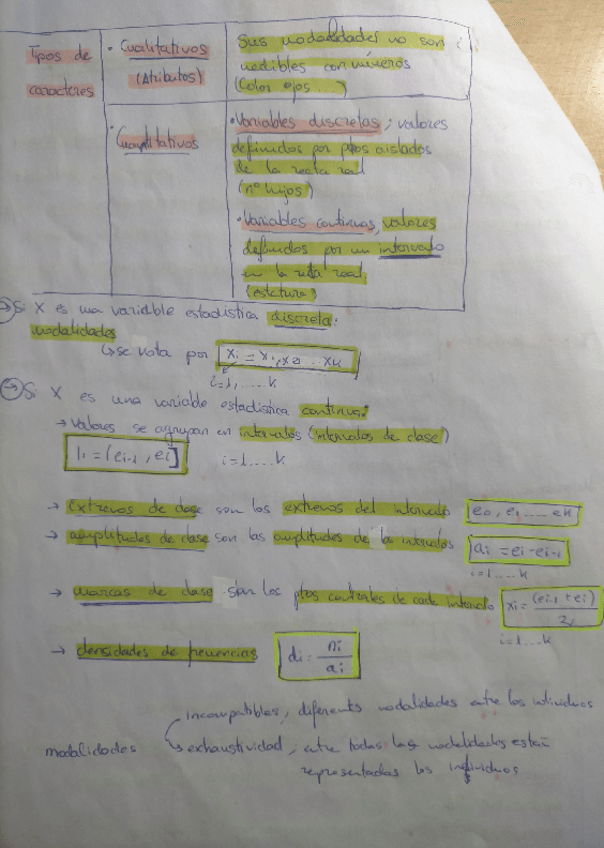 Tipos de
caracteres
• Cualitativos
(Atributos)
Sus modalidades no son
medibles con números
(Color ojos ...)
• Cuantitativos
• Variables discretas; valores
definidos por ptos aislados
de la recta real
(nº hijos)
• Variables continuas, valores
definidos por un intervalo
en la recta real
(estatura)
→ Si X es una variable estadística discreta:
modalidades
↳ se nota por xi = x1, x2 ... xk
i=1, .... k
→ Si X es una variable estadística continua:
→ Valores se agrupan en intervalos (intervalos de clase)
Ii = (ei-1, ei] i=1....k
→ Extremos de clase son los extremos del intervalo e0, e1 ..... ek
→ amplitudes de clase son las amplitudes de los intervalos ai = ei - ei-1
i=1....k
→ marcas de clase son los ptos centrales de cada intervalo xi = (ei-1 + ei) / 2
i=1...k
→ densidades de frecuencias di = ni / ai
incompatibles, diferentes modalidades entre los individuos
modalidades
exhaustividad, entre todas las modalidades están
representados los individuos